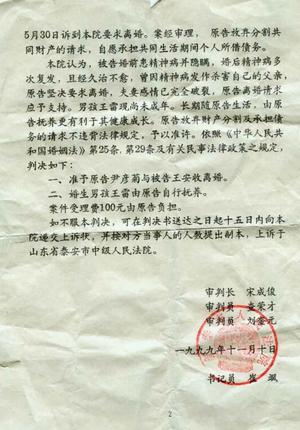 5月30日诉到本院要求离婚。案经审理，原告放弃分割共
同财产的请求，自愿承担共同生活期间个人所借债务。
本院认为，被告婚前患精神病并隐瞒，婚后精神病多
次复发，且经久治不愈，曾因精神病发作杀害自己的父亲，
原告坚决要求离婚，夫妻感情已完全破裂，原告离婚请求
应予支持。男孩王雷现尚未成年。长期随原告生活，由原
告抚养更有利于其健康成长。原告放弃财产分割及承担债
务的请求不违背法律规定，予以准许。依照《中华人民共
和国婚姻法》第25条、第29条及有关民事法律政策之规定，
判决如下：
一、准予原告尹彦菊与被告王安收离婚。
二、婚生男孩王雷由原告自行抚养。
案件受理费100元由原告负担。
如不服本判决，可在判决书送达之日起十五日内向本
院递交上诉状，并按对方当事人的人数提出副本，上诉于
山东省泰安市中级人民法院。
审判长 宋成俊
审判员 查荣才
审判员 刘奎元
一九九九年十一月十日
书记员 崔 飒
2